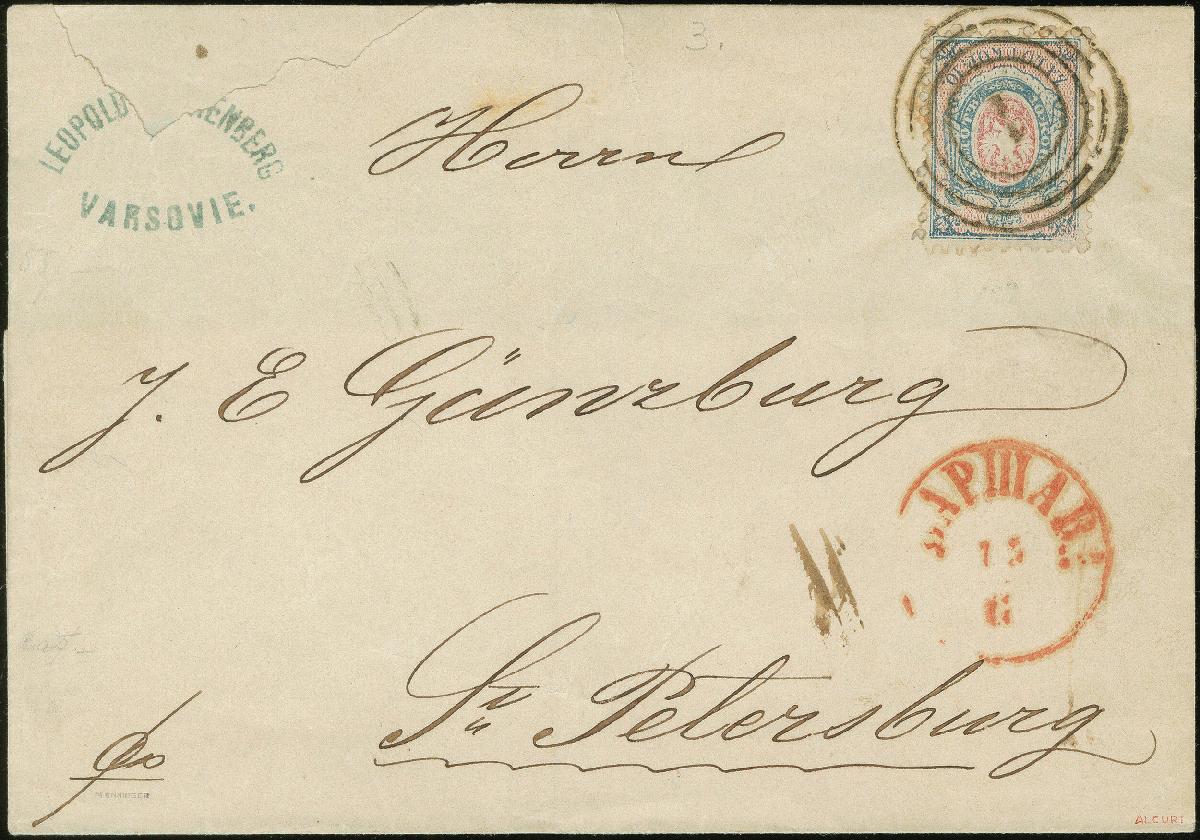 LEOPOLD ENBERG
VARSOVIE.
3.
Herrn
J. E Günzburg
ВАРШАВА
15
6
St. Petersburg
fco
ALCURI